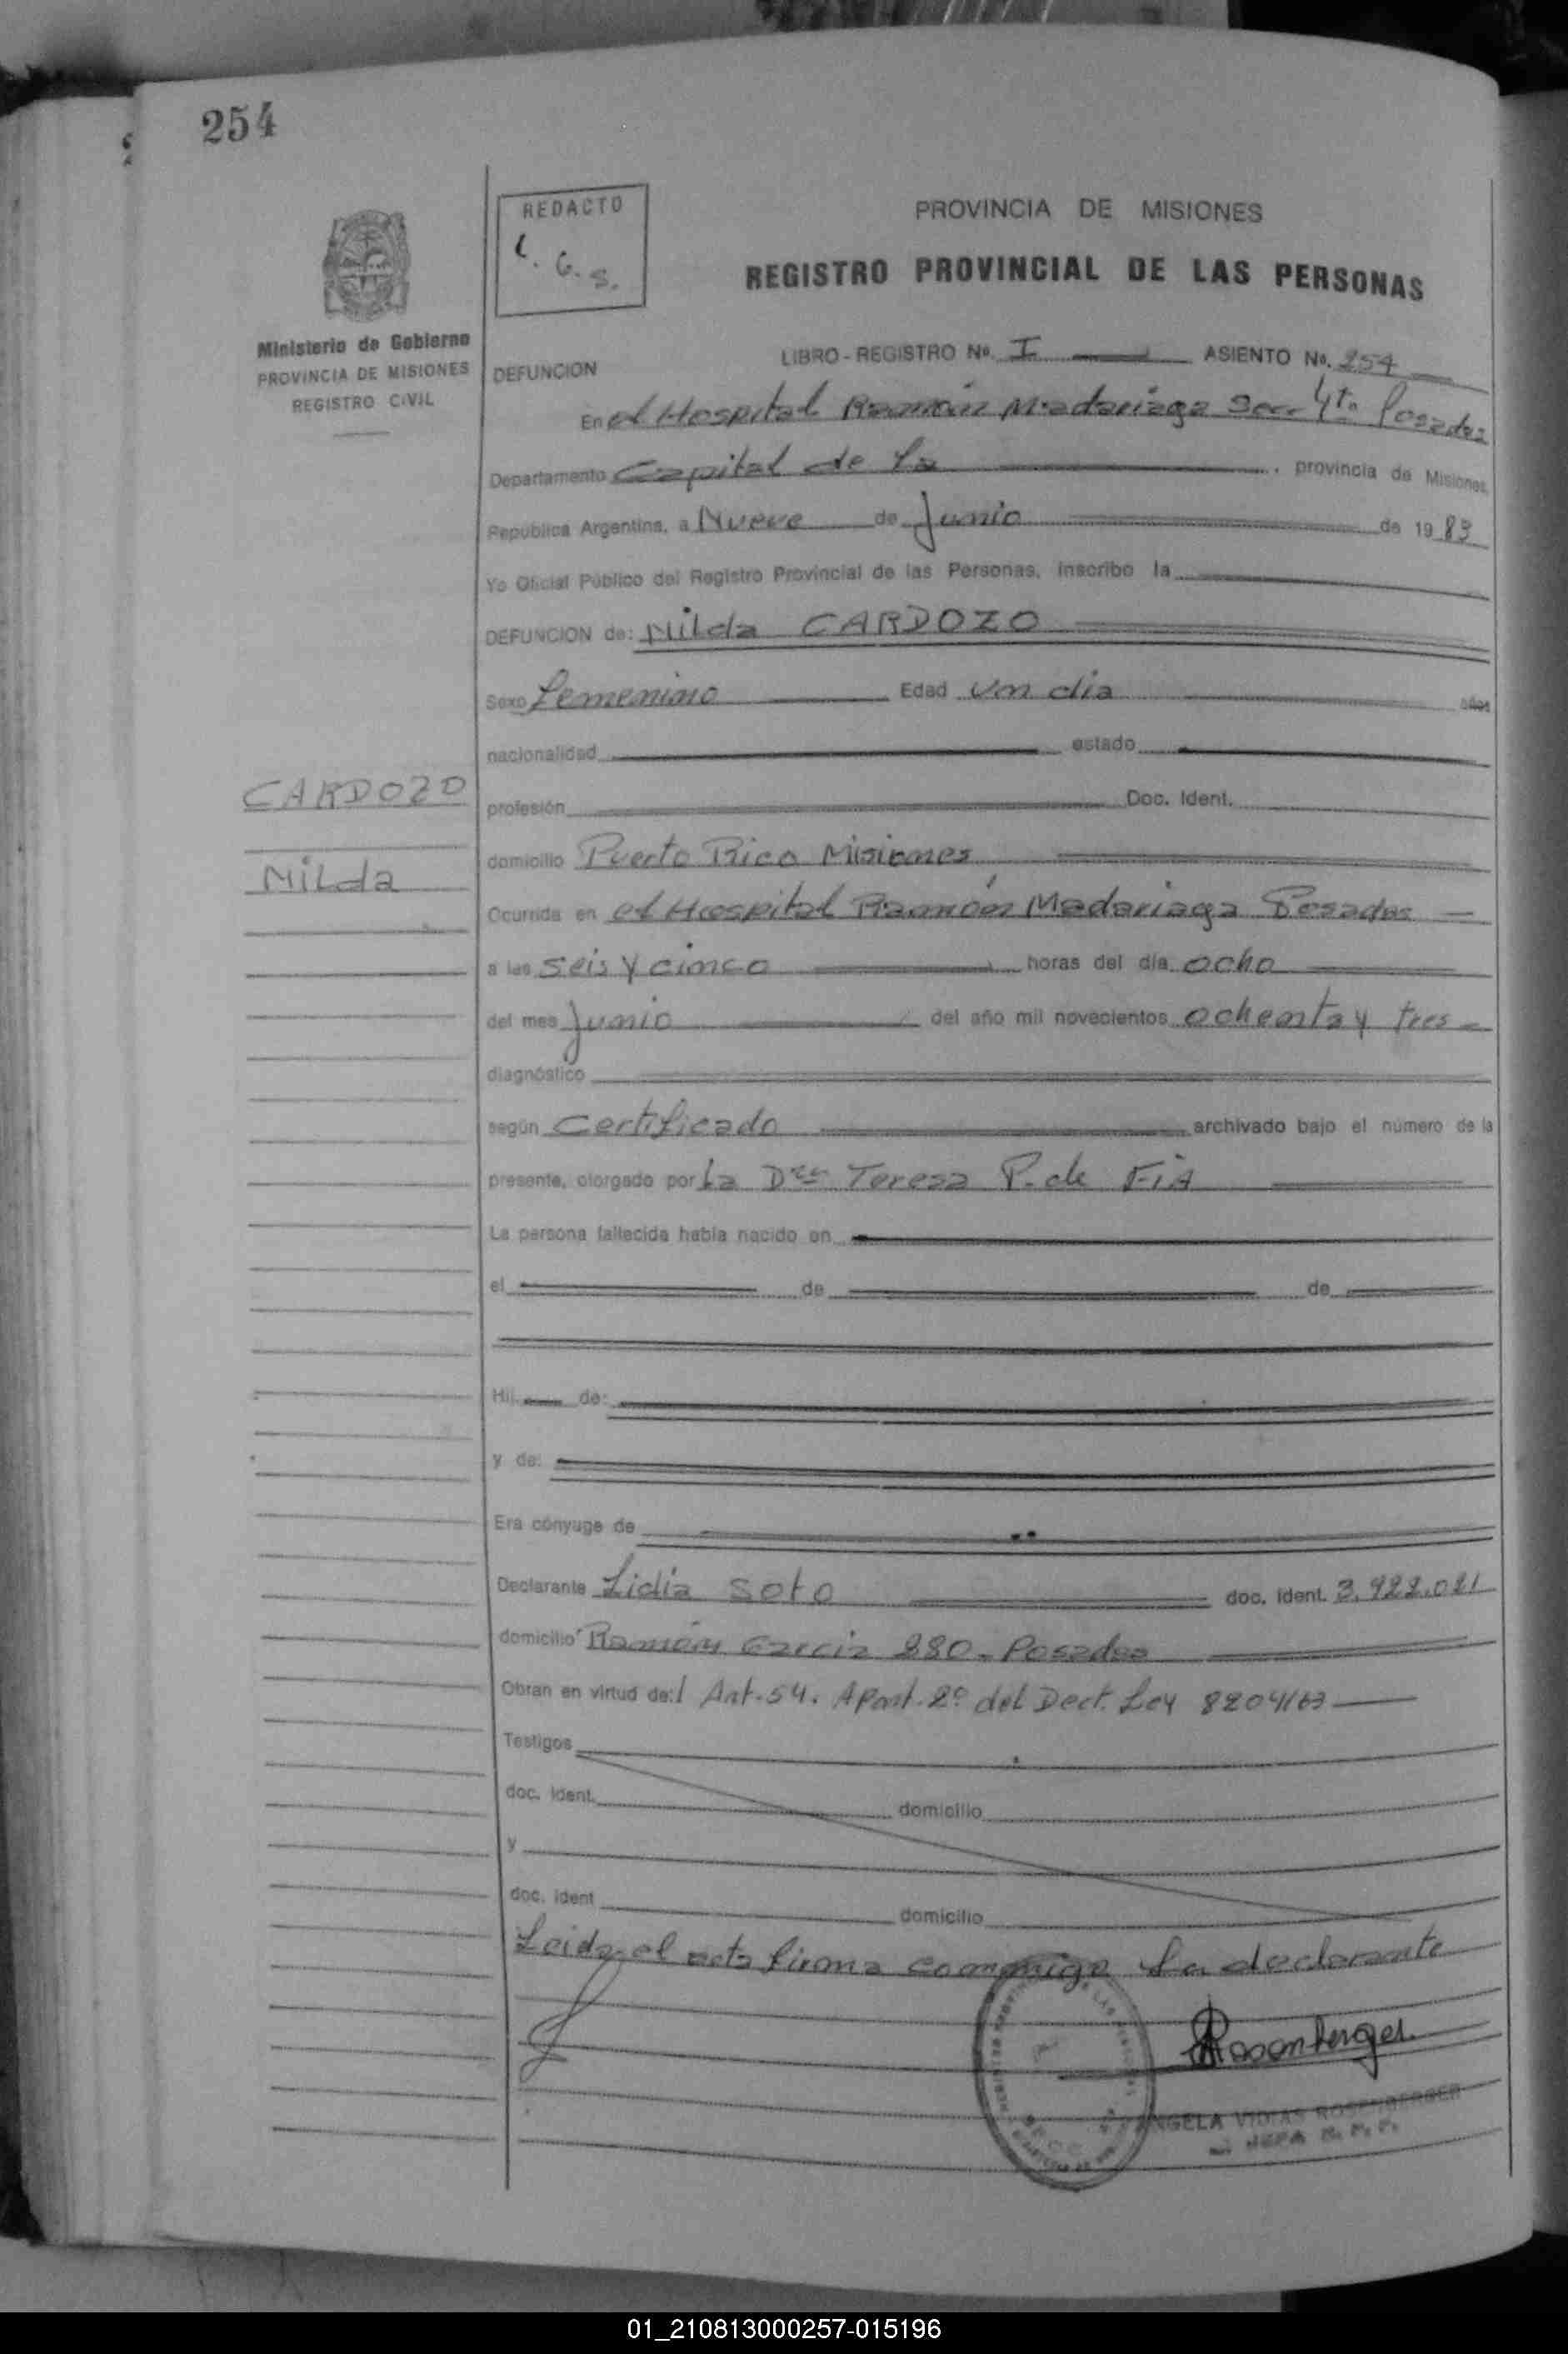 254
REDACTO
C. G. S.
PROVINCIA DE MISIONES
REGISTRO PROVINCIAL DE LAS PERSONAS
Ministerio de Gobierno
PROVINCIA DE MISIONES
REGISTRO CIVIL
LIBRO - REGISTRO No. I ASIENTO No. 254
DEFUNCION
En el Hospital Ramón Madariaga Secc 4ta Posadas
Departamento Capital de La , provincia de Misiones,
República Argentina, a Nueve de Junio de 1983
Yo Oficial Público del Registro Provincial de las Personas, inscribo la
DEFUNCION de: Nilda CARDOZO
Sexo femenino Edad un dia años
nacionalidad estado
CARDOZO
profesión Doc. Ident.
Nilda
domicilio Puerto Rico Misiones
Ocurrida en el Hospital Ramón Madariaga Posadas
a las seis y cinco horas del día ocho
del mes Junio del año mil novecientos ochenta y tres
diagnóstico
según Certificado archivado bajo el número de la
presente, otorgado por La Dra Teresa P. de FiA
La persona fallecida había nacido en
el de de
Hij de:
y de:
Era cónyuge de
Declarante Lidia Soto doc. ident. 3.922.021
domicilio Ramón Garcia 280 - Posadas
Obran en virtud de: l Art. 54. Apart. 2º del Dect. Ley 8204/63
Testigos
doc. ident. domicilio
y
doc. ident domicilio
Leida el acta firma conmigo La declarante
Rosenberger
ANGELA VIDIAS ROSENBERGER
JEFA R. P. P.
01_210813000257-015196